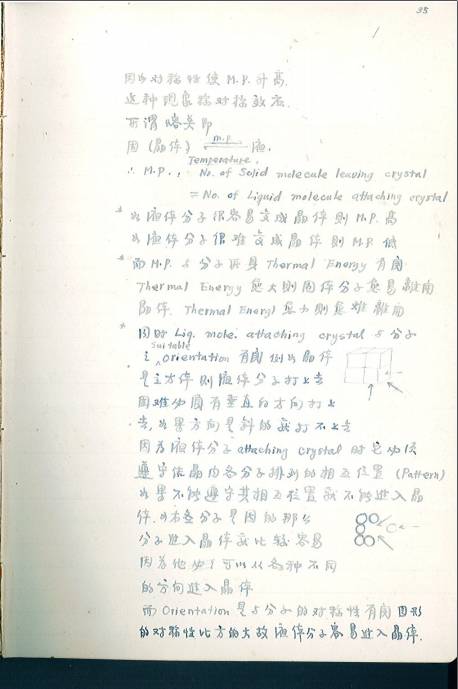 38
因由对称性使 M.P. 升高,
这种现象称对称效应.
所谓 M.P. 即
固 (晶体) m.p. 液.
Temperature,
∴ M.P., : No. of Solid molecule leaving crystal
= No. of Liquid molecule attaching crystal
如液体分子很容易变成晶体则 M.P. 高
如液体分子很难变成晶体则 M.P. 低
而 M.P. 与分子所具 Thermal Energy 有関
Thermal Energy 愈大则固体分子愈易離開
晶体. Thermal Energy 愈小则愈难離開
同时 Liq. mole. attaching crystal 与分子
之 suitable orientation 有関 例如晶体
是立方体则液体分子打上去
困难 必須有垂直的方向打上
去, 如果方向是斜的就打不上去
因为液体分子 attaching crystal 时它必须
遵守依晶内各分子排列的相互位置 (Pattern)
如果不能遵守其相互位置就不能进入晶
体. 如右各分子是圆的那么
分子进入晶体就比较容易
因为他们可以从各种不同
的方向进入晶体
而 Orientation 是与分子的对称性有関 圆形
的对称性比方的大故液体分子容易进入晶体.